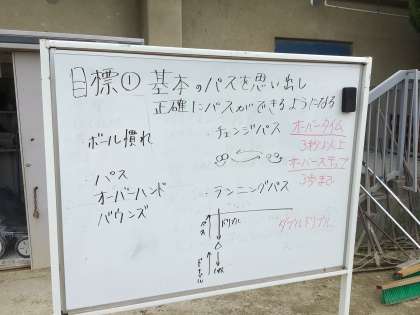 目標① 基本のパスを思い出し
正確にパスができるようになる
・ボール慣れ
・パス
オーバーハンド
バウンズ
・チェンジパス
・ランニングパス
ドリブル
パス
オーバータイム
3秒以上
オーバーステップ
3歩まで
ダブルドリブル